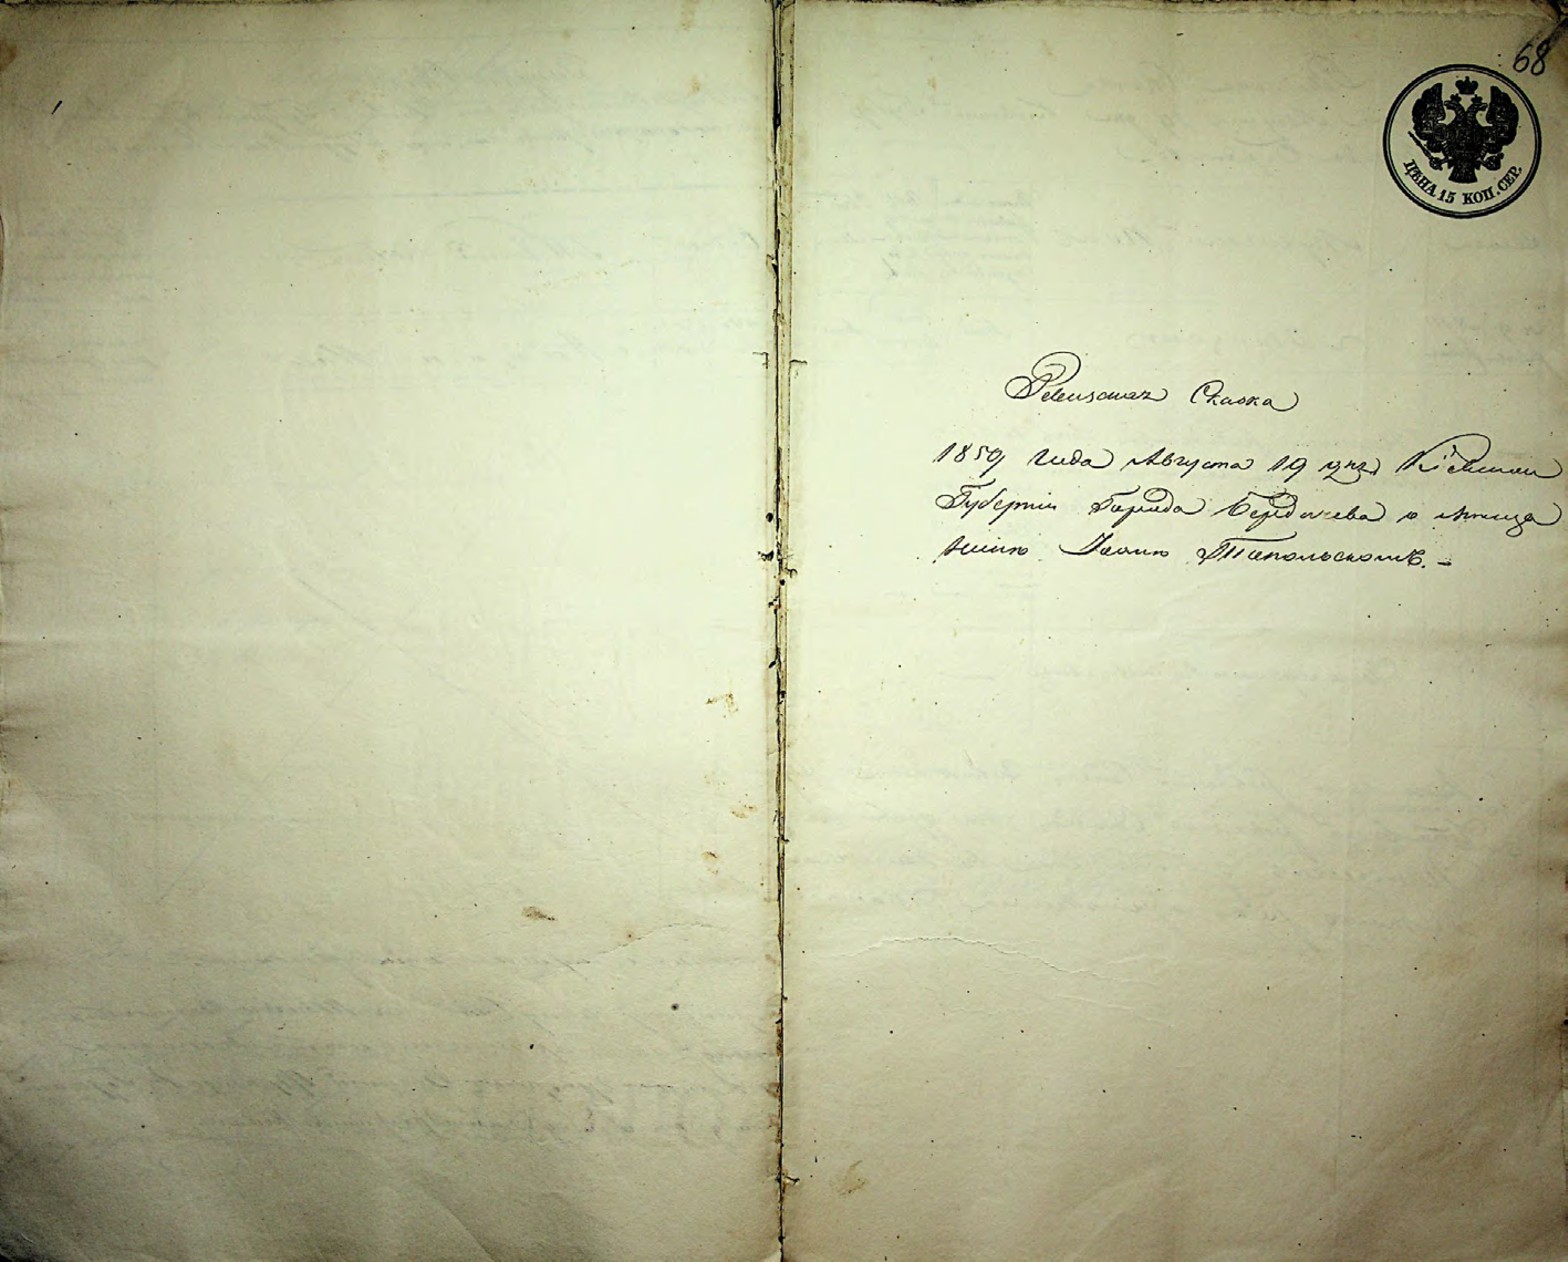 68
ЦѢНА 15 КОП. СЕР.
Ревизская Сказка
1859 года Августа 19 дня Кіевской
Губерніи Города Бердичева о мѣща
нинѣ